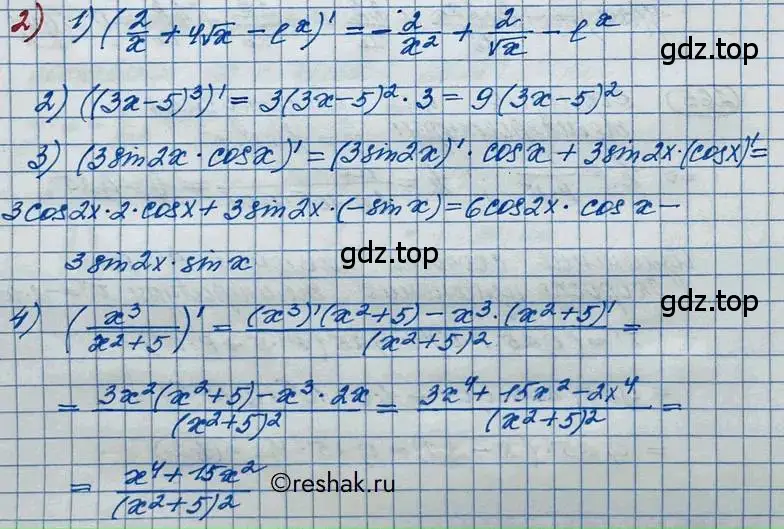 2) 1) (2/x + 4√x − e^x)' = −2/x² + 2/√x − e^x
gdz.top
2) ((3x−5)³)' = 3(3x−5)²·3 = 9(3x−5)²
3) (3sin2x·cosx)' = (3sin2x)'·cosx + 3sin2x·(cosx)' =
3cos2x·2·cosx + 3sin2x·(−sinx) = 6cos2x·cosx −
3sin2x·sinx
gdz.top
4) (x³/(x²+5))' = ((x³)'(x²+5) − x³·(x²+5)')/(x²+5)² =
= (3x²(x²+5) − x³·2x)/(x²+5)² = (3x⁴+15x²−2x⁴)/(x²+5)² =
= (x⁴+15x²)/(x²+5)²
©reshak.ru
gdz.top